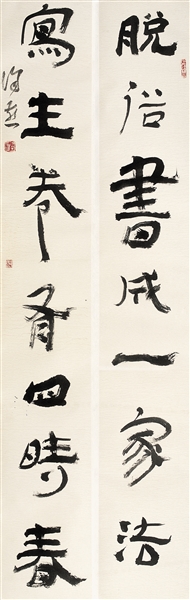 脫俗書成一家法
寫生卷有四時春